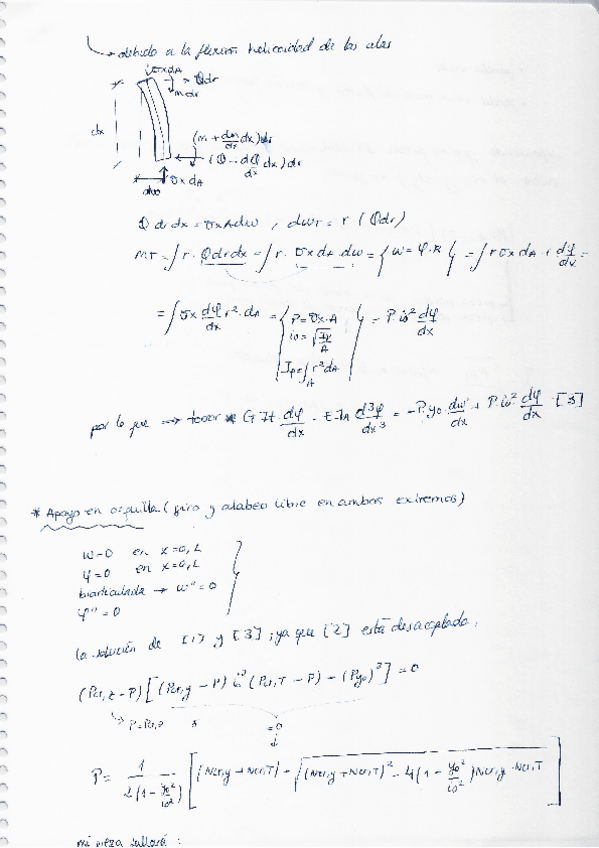 → debido a la flexión helicoidal de las alas
σx dA
Q dr
m dr
dx
(m + dm/dx dx) dr
(Q - dQ/dx dx) dr
dw
σx dA
Q dr dx = σx A dw , dmr = r (Q dr)
mr = ∫ r · Q dr dx = ∫ r · σx dA · dw = { w = φ·R } = ∫ r σx dA · r dφ/dx =
= ∫ σx dφ/dx r² · dA = { P = σx · A
io = √(Ip/A)
Ip = ∫A r² dA } = P io² dφ/dx
por lo que → * G It dφ/dx - E Ia d³φ/dx³ = -P·yo · dw/dx + P io² dφ/dx · [3]
* Apoyo en orquilla (giro y alabeo libre en ambos extremos)
w=0 en x=0, L
φ=0 en x=0, L
biarticulada → w''=0
φ''=0
la solución de [1] y [3]; ya que [2] está desacoplado:
(Pcr,z - P) [(Pcr,y - P) io² (Pcr,T - P) - (Pyo)²] = 0
P=Pcr,z
=0
P = 1 / 2(1 - yo²/io²) [(Ncr,y + Ncr,T) - √((Ncr,y + Ncr,T)² - 4(1 - yo²/io²) Ncr,y · Ncr,T)]
mi pieza fallará :